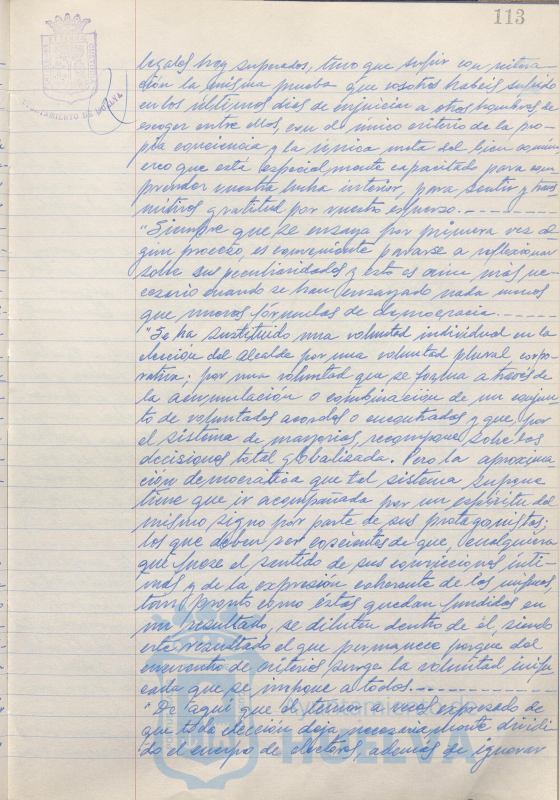 113
AYUNTAMIENTO DE HUELVA
legales hoy superados, tuvo que sufrir con reitera-
ción la misma prueba que vosotros habéis sufrido
en los últimos días de enjuiciar a otros hombres, de
escoger entre ellos, con el único criterio de la pro-
pia conciencia y la única meta del bien común
creo que está especialmente capacitado para com
prender vuestra lucha interior, para sentir y trans
mitiros gratitud por vuestro esfuerzo.
"Siempre que se ensaya por primera vez al
gún proceso, es conveniente pararse a reflexionar
sobre sus peculiaridades y esto es aún más ne-
cesario cuando se han ensayado nada menos
que nuevas fórmulas de democracia.
"Se ha sustituido una voluntad individual en la
elección del Alcalde por una voluntad plural, corpo-
rativa; por una voluntad que se forma a través de
la acumulación o combinación de un conjun
to de voluntades acordes o encontradas y que, por
el sistema de mayorías, recompone sobre sus
decisiones total globalizada. Pero la aproxima
ción democrática que tal sistema supone
tiene que ir acompañada por un espíritu del
mismo signo por parte de sus protagonistas;
los que deben ser conscientes de que, cualquiera
que fuese el sentido de sus convicciones ínti-
mas y de la expresión coherente de las mismas
tan pronto como éstas quedan fundidas en
un resultado, se diluyen dentro de él, siendo
este resultado el que permanece porque del
encuentro de criterios surge la voluntad unifi
cada que se impone a todos.
"De aquí que el temor a veces expresado de
que toda elección deja necesariamente dividi-
do el cuerpo de electores, además de ignorar
Ayuntamiento de
HUELVA